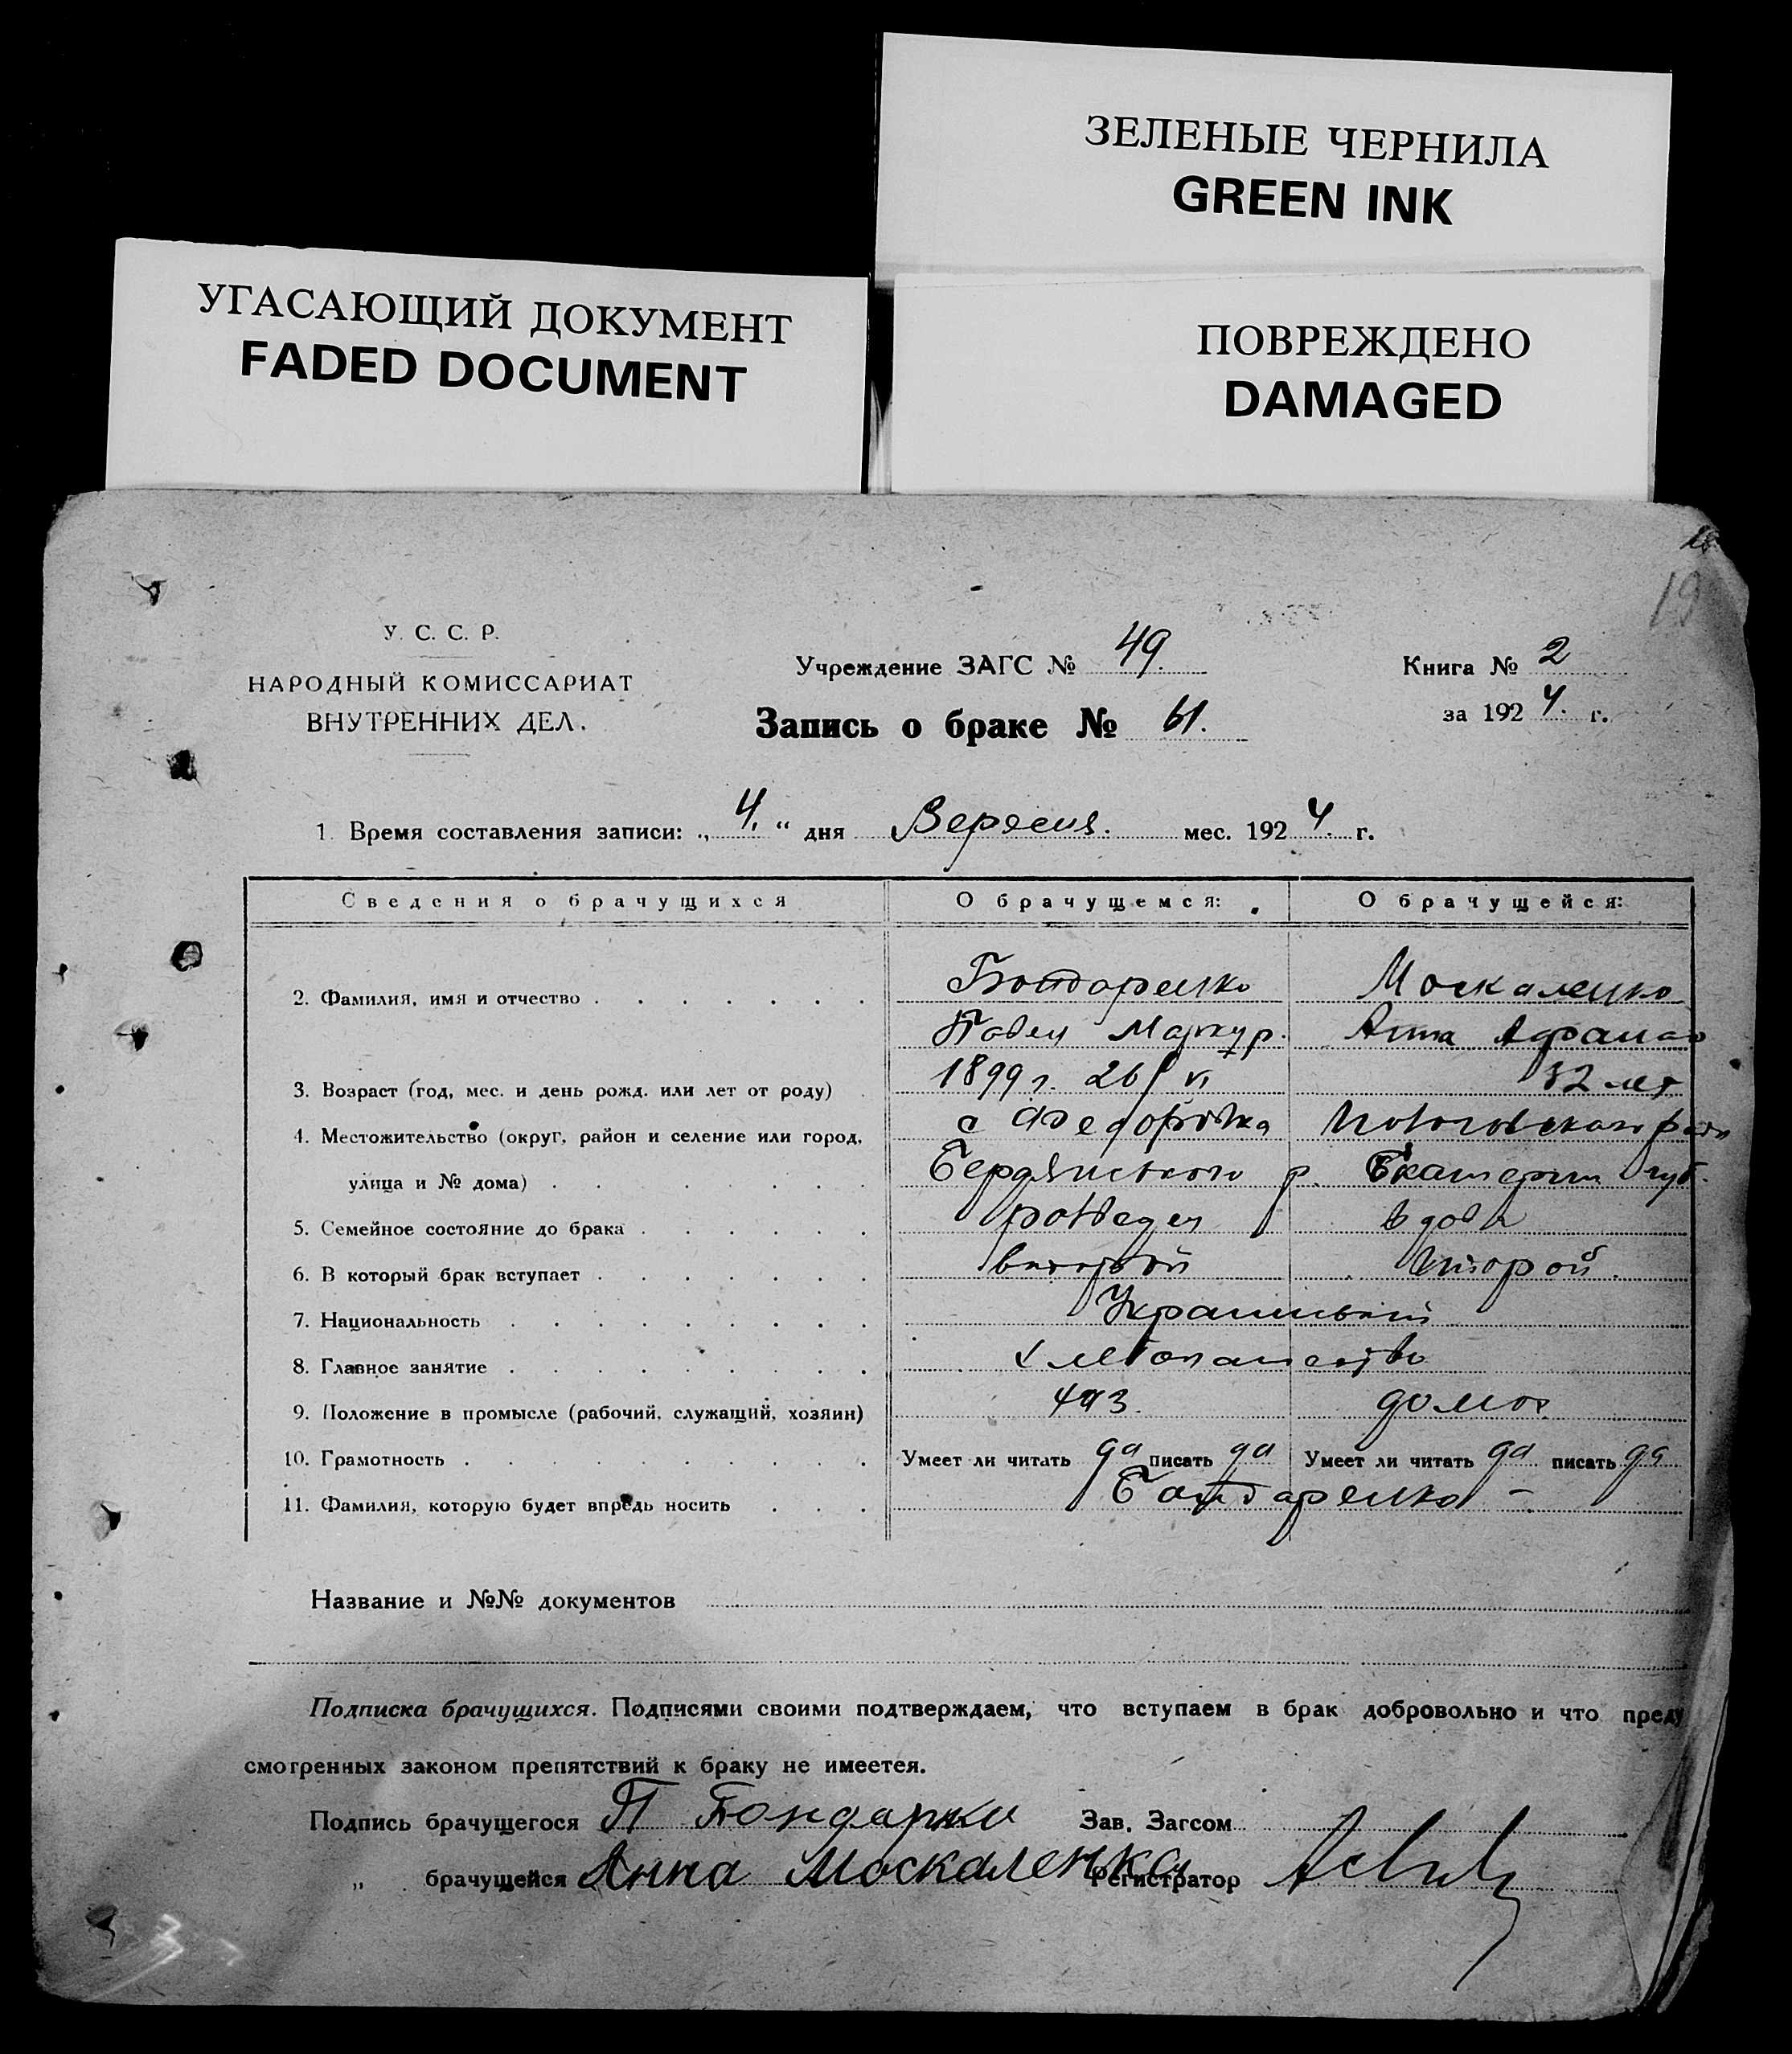 ЗЕЛЕНЫЕ ЧЕРНИЛА
GREEN INK
УГАСАЮЩИЙ ДОКУМЕНТ
FADED DOCUMENT
ПОВРЕЖДЕНО
DAMAGED
19
У. С. С. Р.
НАРОДНЫЙ КОМИССАРИАТ
ВНУТРЕННИХ ДЕЛ.
Учреждение ЗАГС № 49.
Запись о браке № 61.
Книга № 2
за 1924. г.
1. Время составления записи: „ 4. “ дня Вересня. мес. 1924. г.
Сведения о брачущихся О брачущемся: О брачущейся:
2. Фамилия, имя и отчество Бондаренко Москаленко
Павел Маркур. Анна
3. Возраст (год, мес. и день рожд. или лет от роду) 1899 г. 26/VI 32 лет
4. Местожительство (округ, район и селение или город, с Федоровка
улица и № дома) Бердянського р. Екатерин губ.
5. Семейное состояние до брака розведен вдова
6. В который брак вступает второй второй.
7. Национальность
8. Главное занятие
9. Положение в промысле (рабочий, служащий, хозяин) домог.
10. Грамотность Умеет ли читать да писать да Умеет ли читать да писать да
11. Фамилия, которую будет впредь носить Бондаренко –
Название и №№ документов
Подписка брачущихся. Подписями своими подтверждаем, что вступаем в брак добровольно и что преду
смотренных законом препятствий к браку не имеетея.
Подпись брачущегося П Бондарко Зав. Загсом
„ брачущейся Анна Москаленка Регистратор